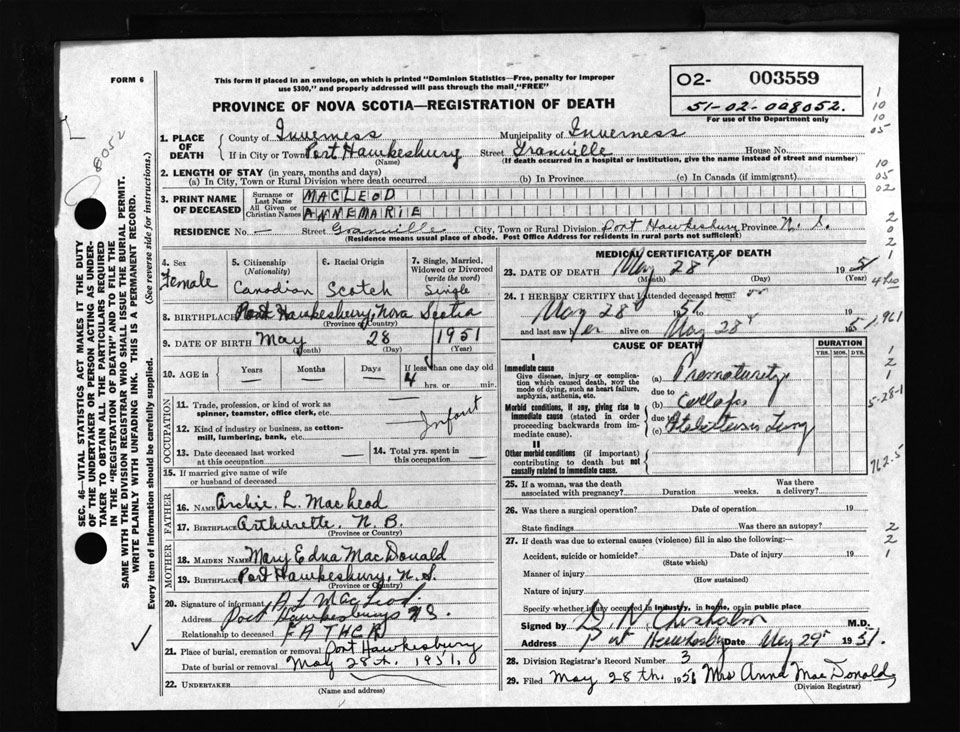 FORM 6
This form if placed in an envelope, on which is printed "Dominion Statistics—Free, penalty for improper
use $300," and properly addressed will pass through the mail "FREE"
PROVINCE OF NOVA SCOTIA—REGISTRATION OF DEATH
O2- 003559
51-02-008052.
For use of the Department only
8052
SEC. 46—VITAL STATISTICS ACT MAKES IT THE DUTY
OF THE UNDERTAKER OR PERSON ACTING AS UNDER-
TAKER TO OBTAIN ALL THE PARTICULARS REQUIRED
IN THE "REGISTRATION OF DEATH" AND TO FILE THE
SAME WITH THE DIVISION REGISTRAR WHO SHALL ISSUE THE BURIAL PERMIT.
WRITE PLAINLY WITH UNFADING INK. THIS IS A PERMANENT RECORD.
Every item of information should be carefully supplied. (See reverse side for instructions.)
1. PLACE OF DEATH
County of Inverness Municipality of Inverness
If in City or Town Port Hawkesbury Street Granville House No.
(Name) (If death occurred in a hospital or institution, give the name instead of street and number)
2. LENGTH OF STAY (in years, months and days)
(a) In City, Town or Rural Division where death occurred (b) In Province (c) In Canada (if immigrant)
3. PRINT NAME OF DECEASED
Surname or Last Name MACLEOD
All Given or Christian Names ANNEMARIE
RESIDENCE No. — Street Granville City, Town or Rural Division Port Hawkesbury Province N. S.
(Residence means usual place of abode. Post Office Address for residents in rural parts not sufficient)
4. Sex Female
5. Citizenship (Nationality) Canadian
6. Racial Origin Scotch
7. Single, Married, Widowed or Divorced (write the word) Single
8. BIRTHPLACE Port Hawkesbury, Nova Scotia
(Province or Country)
9. DATE OF BIRTH May 28 1951
(Month) (Day) (Year)
10. AGE in Years Months Days If less than one day old
4 hrs. or min.
OCCUPATION
11. Trade, profession, or kind of work as
spinner, teamster, office clerk, etc.
12. Kind of industry or business, as cotton-
mill, lumbering, bank, etc.
Infant
13. Date deceased last worked
at this occupation
14. Total yrs. spent in
this occupation
15. If married give name of wife
or husband of deceased
FATHER
16. NAME Archie L. MacLeod
17. BIRTHPLACE Arthurette, N. B.
(Province or Country)
MOTHER
18. MAIDEN NAME Mary Edna MacDonald
19. BIRTHPLACE Port Hawkesbury, N.S.
(Province or Country)
20. Signature of informant A L MacLeod
Address Port Hawkesbury N S.
Relationship to deceased FATHER
21. Place of burial, cremation or removal Port Hawkesbury
Date of burial or removal May 28th. 1951.
22. UNDERTAKER
(Name and address)
MEDICAL CERTIFICATE OF DEATH
23. DATE OF DEATH May 28 1951
(Month) (Day)
24. I HEREBY CERTIFY that I attended deceased from:
May 28 51
and last saw her alive on May 28 1951
CAUSE OF DEATH
DURATION
YRS. MOS. DYS.
I
Immediate cause
Give disease, injury or complica-
tion which caused death, NOT the
mode of dying, such as heart failure,
asphyxia, asthenia, etc.
(a) Prematurity
due to
Morbid conditions, if any, giving rise to
immediate cause (stated in order
proceeding backwards from im-
mediate cause).
(b)
due to
(c) Lung
II
Other morbid conditions (if important)
contributing to death but not
causally related to immediate cause.
25. If a woman, was the death
associated with pregnancy? Duration weeks. Was there
a delivery?
26. Was there a surgical operation? Date of operation 19
State findings Was there an autopsy?
27. If death was due to external causes (violence) fill in also the following:—
Accident, suicide or homicide? Date of injury 19
(State which)
Manner of injury
(How sustained)
Nature of injury
Specify whether injury occurred in industry, in home, or in public place
Signed by D. N Chisholm M.D.
Address Port Hawkesby Date May 29 1951.
28. Division Registrar's Record Number 3
29. Filed May 28th. 1951 Mrs Anna MacDonald
(Division Registrar)
1
10
10
05
10
05
02
2
0
2
1
4 hrs
1961
1
2
2
1
5-28-1
762.5
2
2
1